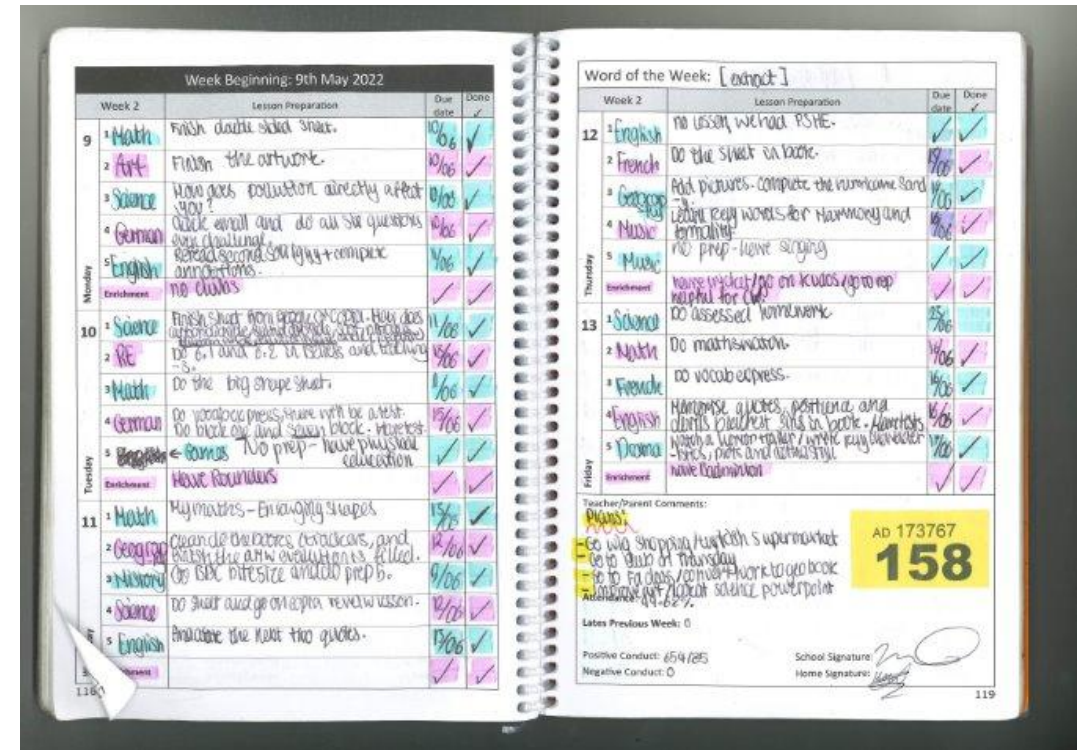 Week Beginning: 9th May 2022
Week 2 Lesson Preparation Due date Done ✓
Monday
9 1 Math Finish double sided sheet. 10/06 ✓
2 Art Finish the artwork. 10/06 ✓
3 Science How does pollution directly affect 10/06 ✓
you?
4 German Quick email and do all six questions 10/06 ✓
even challenge.
5 English Reread second + complete 11/06 ✓
annotations.
Enrichment no clubs ✓ ✓
Tuesday
10 1 Science Finish sheet from google How does 11/06 ✓
2 RE Do 6.1 and 6.2 in beliefs and teaching 15/06 ✓
-s.
3 Math Do the big shape sheet. ✓
4 German Do vocab express, there will be a test. 15/06 ✓
Do block one and seven block. Have test.
5 ← Games No prep - have physical ✓ ✓
education
Enrichment Have Rounders ✓ ✓
11 1 Math Mymaths - Enlarging shapes 15/06 ✓
2 Geograp and 12/06 ✓
finish the filled.
3 History Go BBC bitesize and do prep 6. 9/06 ✓
4 Science Do sheet and go on review lesson. 12/06 ✓
5 English Annotate the next two quotes. 13/06 ✓
✓ ✓
116
Word of the Week: [extract]
Week 2 Lesson Preparation Due date Done ✓
Thursday
12 1 English no lesson, we had PSHE. ✓ ✓
2 French Do the sheet in book. 15/06 ✓
3 Geograp Add pictures. complete the hurricane Sand ✓
-y.
4 Music Learn key words for Harmony and ✓
tonality
5 Music no prep - have singing ✓ ✓
Enrichment have cricket/go on Kudos/go to rep ✓ ✓
helpful for
Friday
13 1 Science Do assessed homework. 25/06
2 Math Do mathswatch. 14/06 ✓
3 French Do vocab express. 16/06 ✓
4 English Memorise quotes, and 16/06 ✓
in book.
5 Drama Watch a horror trailer/write key character ✓
plots and acting style
Enrichment have Badminton ✓ ✓
Teacher/Parent Comments:
Plans:
- Go wig shopping/turkish supermarket
- Go to on Thursday
- Go to work to geo book
- Improve science powerpoint
Attendance:
Lates Previous Week: 0
Positive Conduct: 659/85
Negative Conduct: 0
School Signature:
Home Signature:
119
AD 173767
158